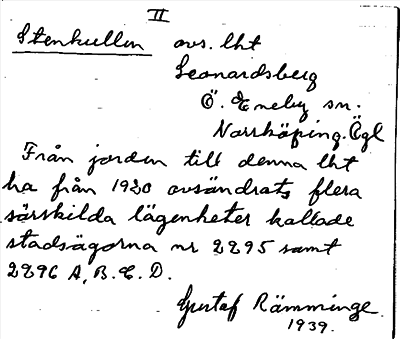 II
Stenkullen avs. lht
Leonardsberg
Ö. Eneby sn.
Norrköping. Ögl
Från jorden till denna lht
ha från 1920 avsändrats flera
särskilda lägenheter kallade
stadsägorna nr 2295 samt
2296 A, B. C. D.
Gustaf Rämminge
1939.